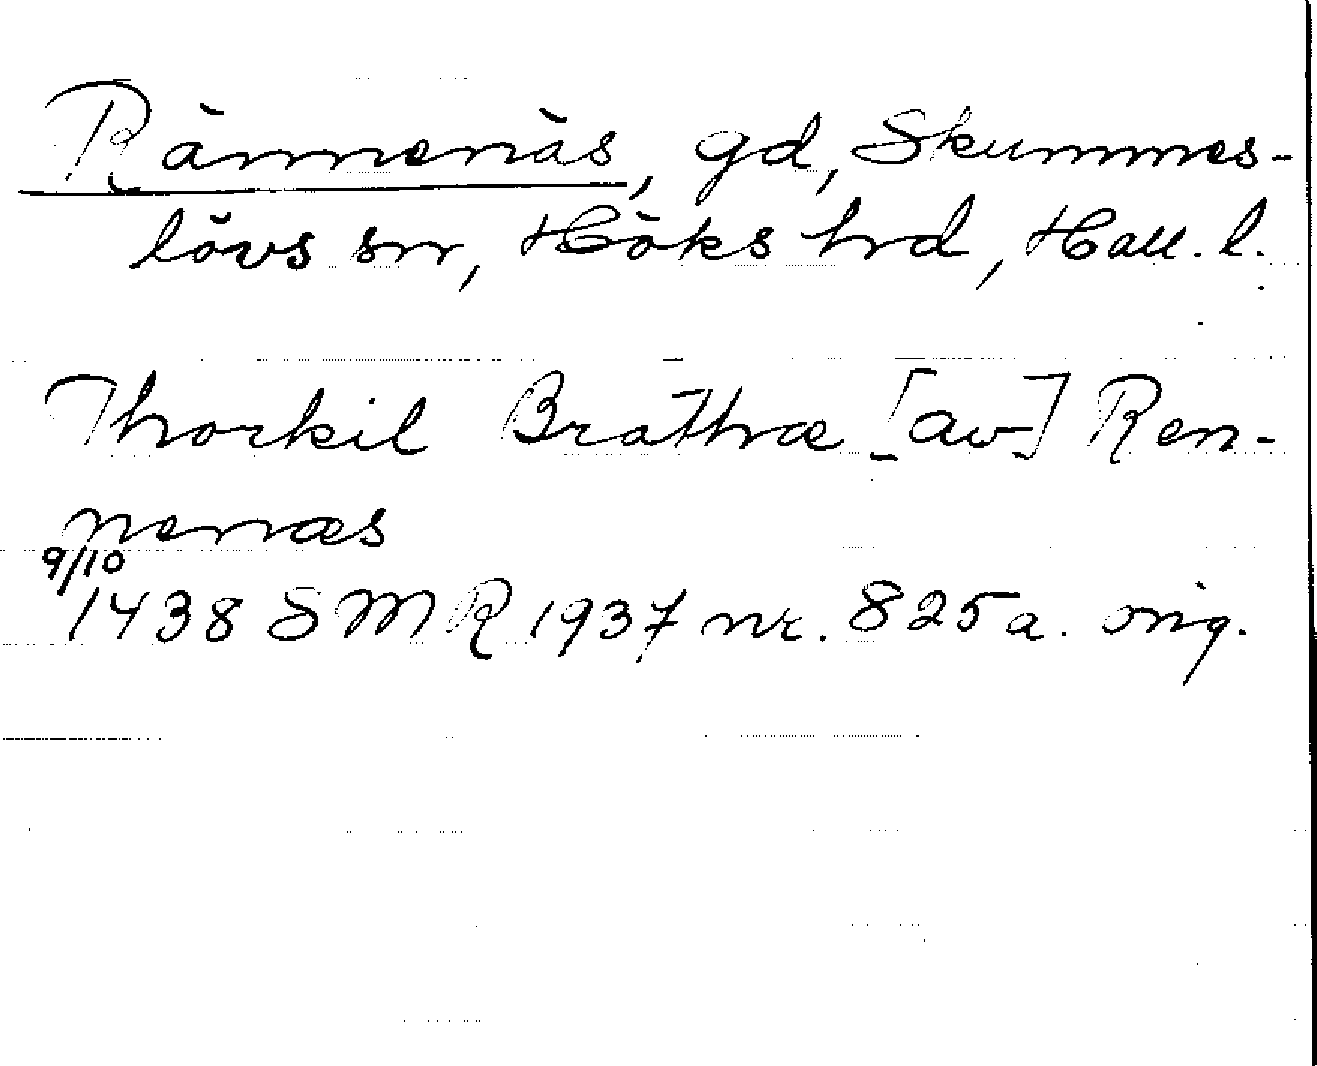 Rännenäs, gd, Skummes-
lövs sn, Höks hrd, Hall. l.
Thorkil Brathræ [av] Ren-
nenæs
9/10
1438 SMR 1937 nr. 825a. orig.